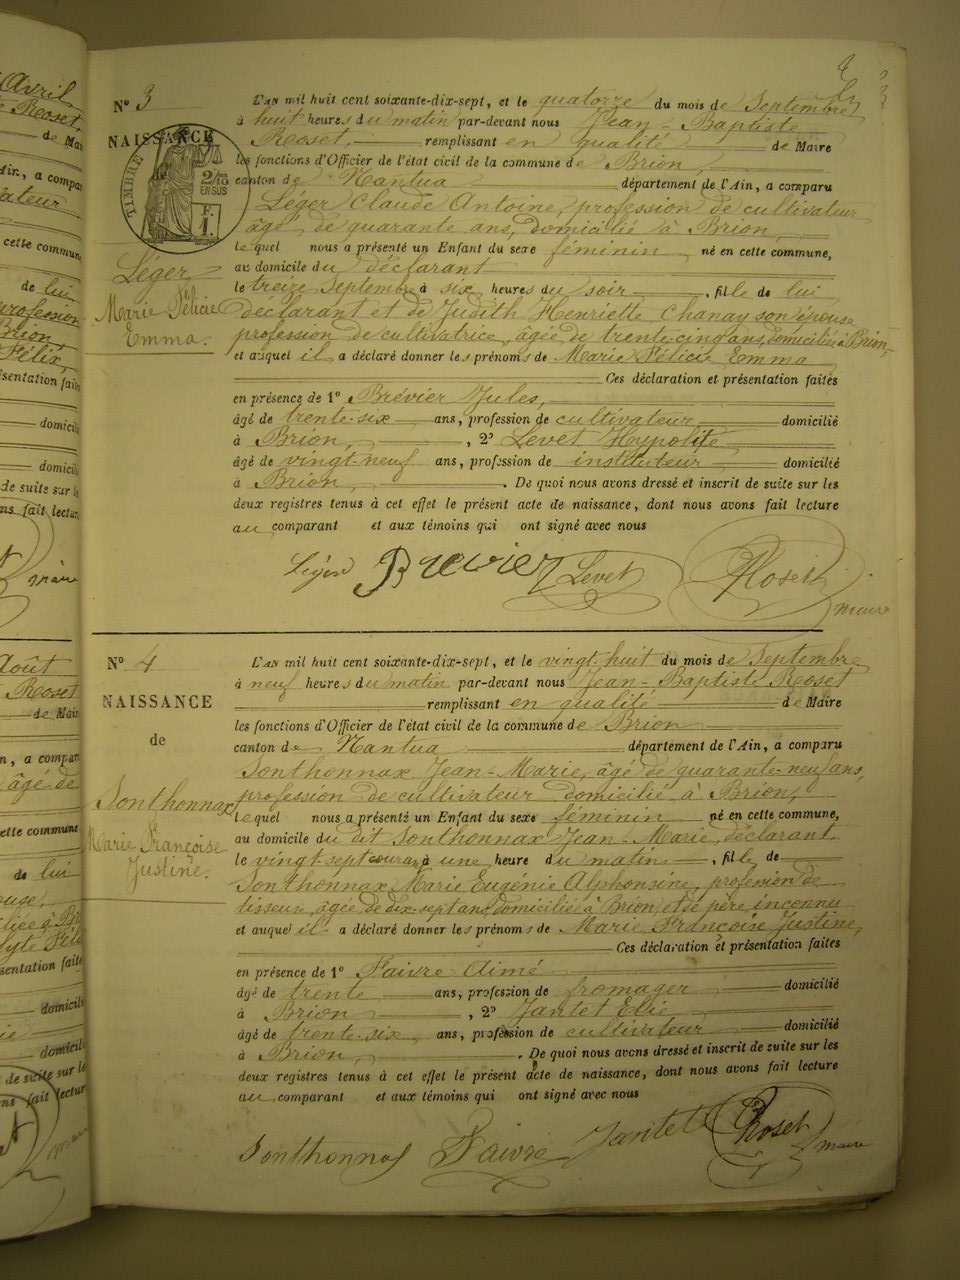 Avril
Roset,
de Mai
Ain, a compar
ateur
cette commune
de lui
profession
Brion,
Félix,
sentation faite
domicili
domicili
de suite sur le
ns fait lectur
maire
Août
Roset
de Mair
n, a compar
âgé de
cette commune
de lui
sentation faite
domicili
domicili
de suite sur le
ns fait lectur
N° 3
NAISSANCE
TIMBRE
2/10
EN SUS
F.
1.
Léger
Marie Félicie
Emma.
L'AN mil huit cent soixante-dix-sept, et le quatorze du mois de Septembre
à huit heures du matin par-devant nous Jean-Baptiste
Roset remplissant en qualité de Maire
les fonctions d'Officier de l'état civil de la commune de Brion,
canton de Nantua département de l'Ain, a comparu
Léger Claude Antoine, profession de cultivateur
âgé de quarante ans, domicilié à Brion,
lequel nous a présenté un Enfant du sexe féminin né en cette commune,
au domicile du déclarant
le treize Septembre à six heures du soir, fille de lui
déclarant et de Judith Henriette Chanay son épouse
profession de cultivatrice, âgée de trente cinq ans, domiciliée à Brion,
et auquel il a déclaré donner les prénoms de Marie Félicie Emma
Ces déclaration et présentation faites
en présence de 1° Brévier Jules,
âgé de trente-six ans, profession de cultivateur domicilié
à Brion, , 2° Levet Hypolite
âgé de vingt-neuf ans, profession de instituteur domicilié
à Brion, . De quoi nous avons dressé et inscrit de suite sur les
deux registres tenus à cet effet le présent acte de naissance, dont nous avons fait lecture
au comparant et aux témoins qui ont signé avec nous
Léger Brevier Levet Roset
maire
N° 4
NAISSANCE
de
Sonthonnax
Marie Françoise
Justine.
L'AN mil huit cent soixante-dix-sept, et le vingt-huit du mois de Septembre
à neuf heures du matin par-devant nous Jean-Baptiste Roset
remplissant en qualité de Maire
les fonctions d'Officier de l'état civil de la commune de Brion
canton de Nantua département de l'Ain, a comparu
Sonthonnax Jean-Marie, âgé de quarante-neuf ans,
profession de cultivateur domicilié à Brion,
lequel nous a présenté un Enfant du sexe féminin né en cette commune,
au domicile du dit Sonthonnax Jean-Marie, déclarant
le vingt sept courant à une heure du matin, fille de
Sonthonnax Marie Eugénie Alphonsine, profession de
tisseur, âgée de dix-sept ans, domiciliée à Brion, et de père inconnu
et auquel il a déclaré donner les prénoms de Marie Françoise Justine,
Ces déclaration et présentation faites
en présence de 1° Faivre Aimé
âgé de trente ans, profession de fromager domicilié
à Brion , 2° Jantet Elie
âgé de trente-six ans, profession de cultivateur domicilié
à Brion, . De quoi nous avons dressé et inscrit de suite sur les
deux registres tenus à cet effet le présent acte de naissance, dont nous avons fait lecture
au comparant et aux témoins qui ont signé avec nous
Sonthonnax Faivre Jantet Roset
maire